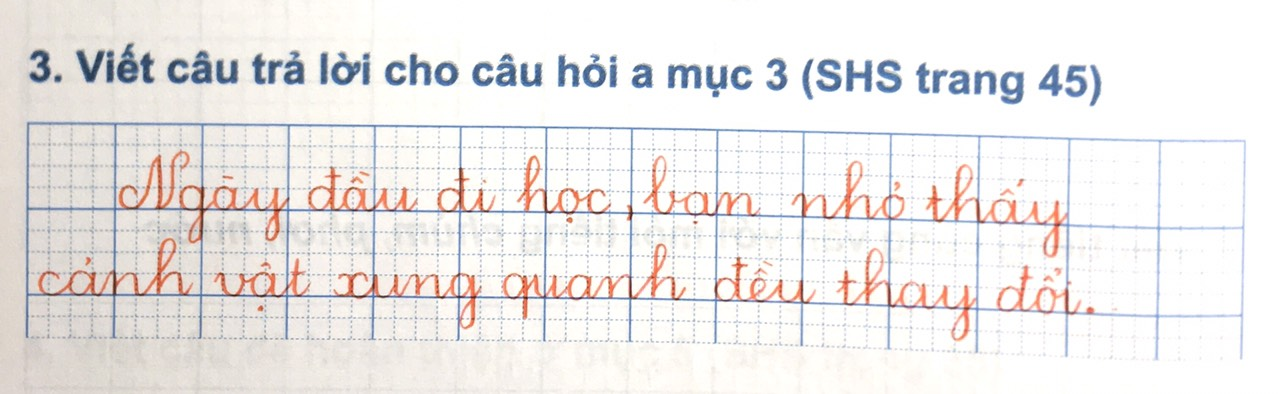 3. Viết câu trả lời cho câu hỏi a mục 3 (SHS trang 45)
Ngày đầu đi học, bạn nhỏ thấy
cảnh vật xung quanh đều thay đổi.